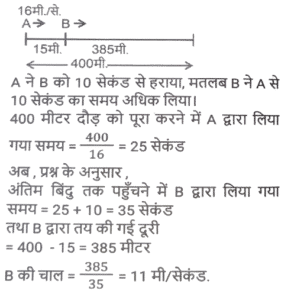 16मी./से.
A→ B→
15मी. 385मी.
400मी.
A ने B को 10 सेकंड से हराया, मतलब B ने A से
10 सेकंड का समय अधिक लिया।
400 मीटर दौड़ को पूरा करने में A द्वारा लिया
गया समय = 400/16 = 25 सेकंड
अब, प्रश्न के अनुसार,
अंतिम बिंदु तक पहुँचने में B द्वारा लिया गया
समय = 25 + 10 = 35 सेकंड
तथा B द्वारा तय की गई दूरी
= 400 - 15 = 385 मीटर
B की चाल = 385/35 = 11 मी/सेकंड.